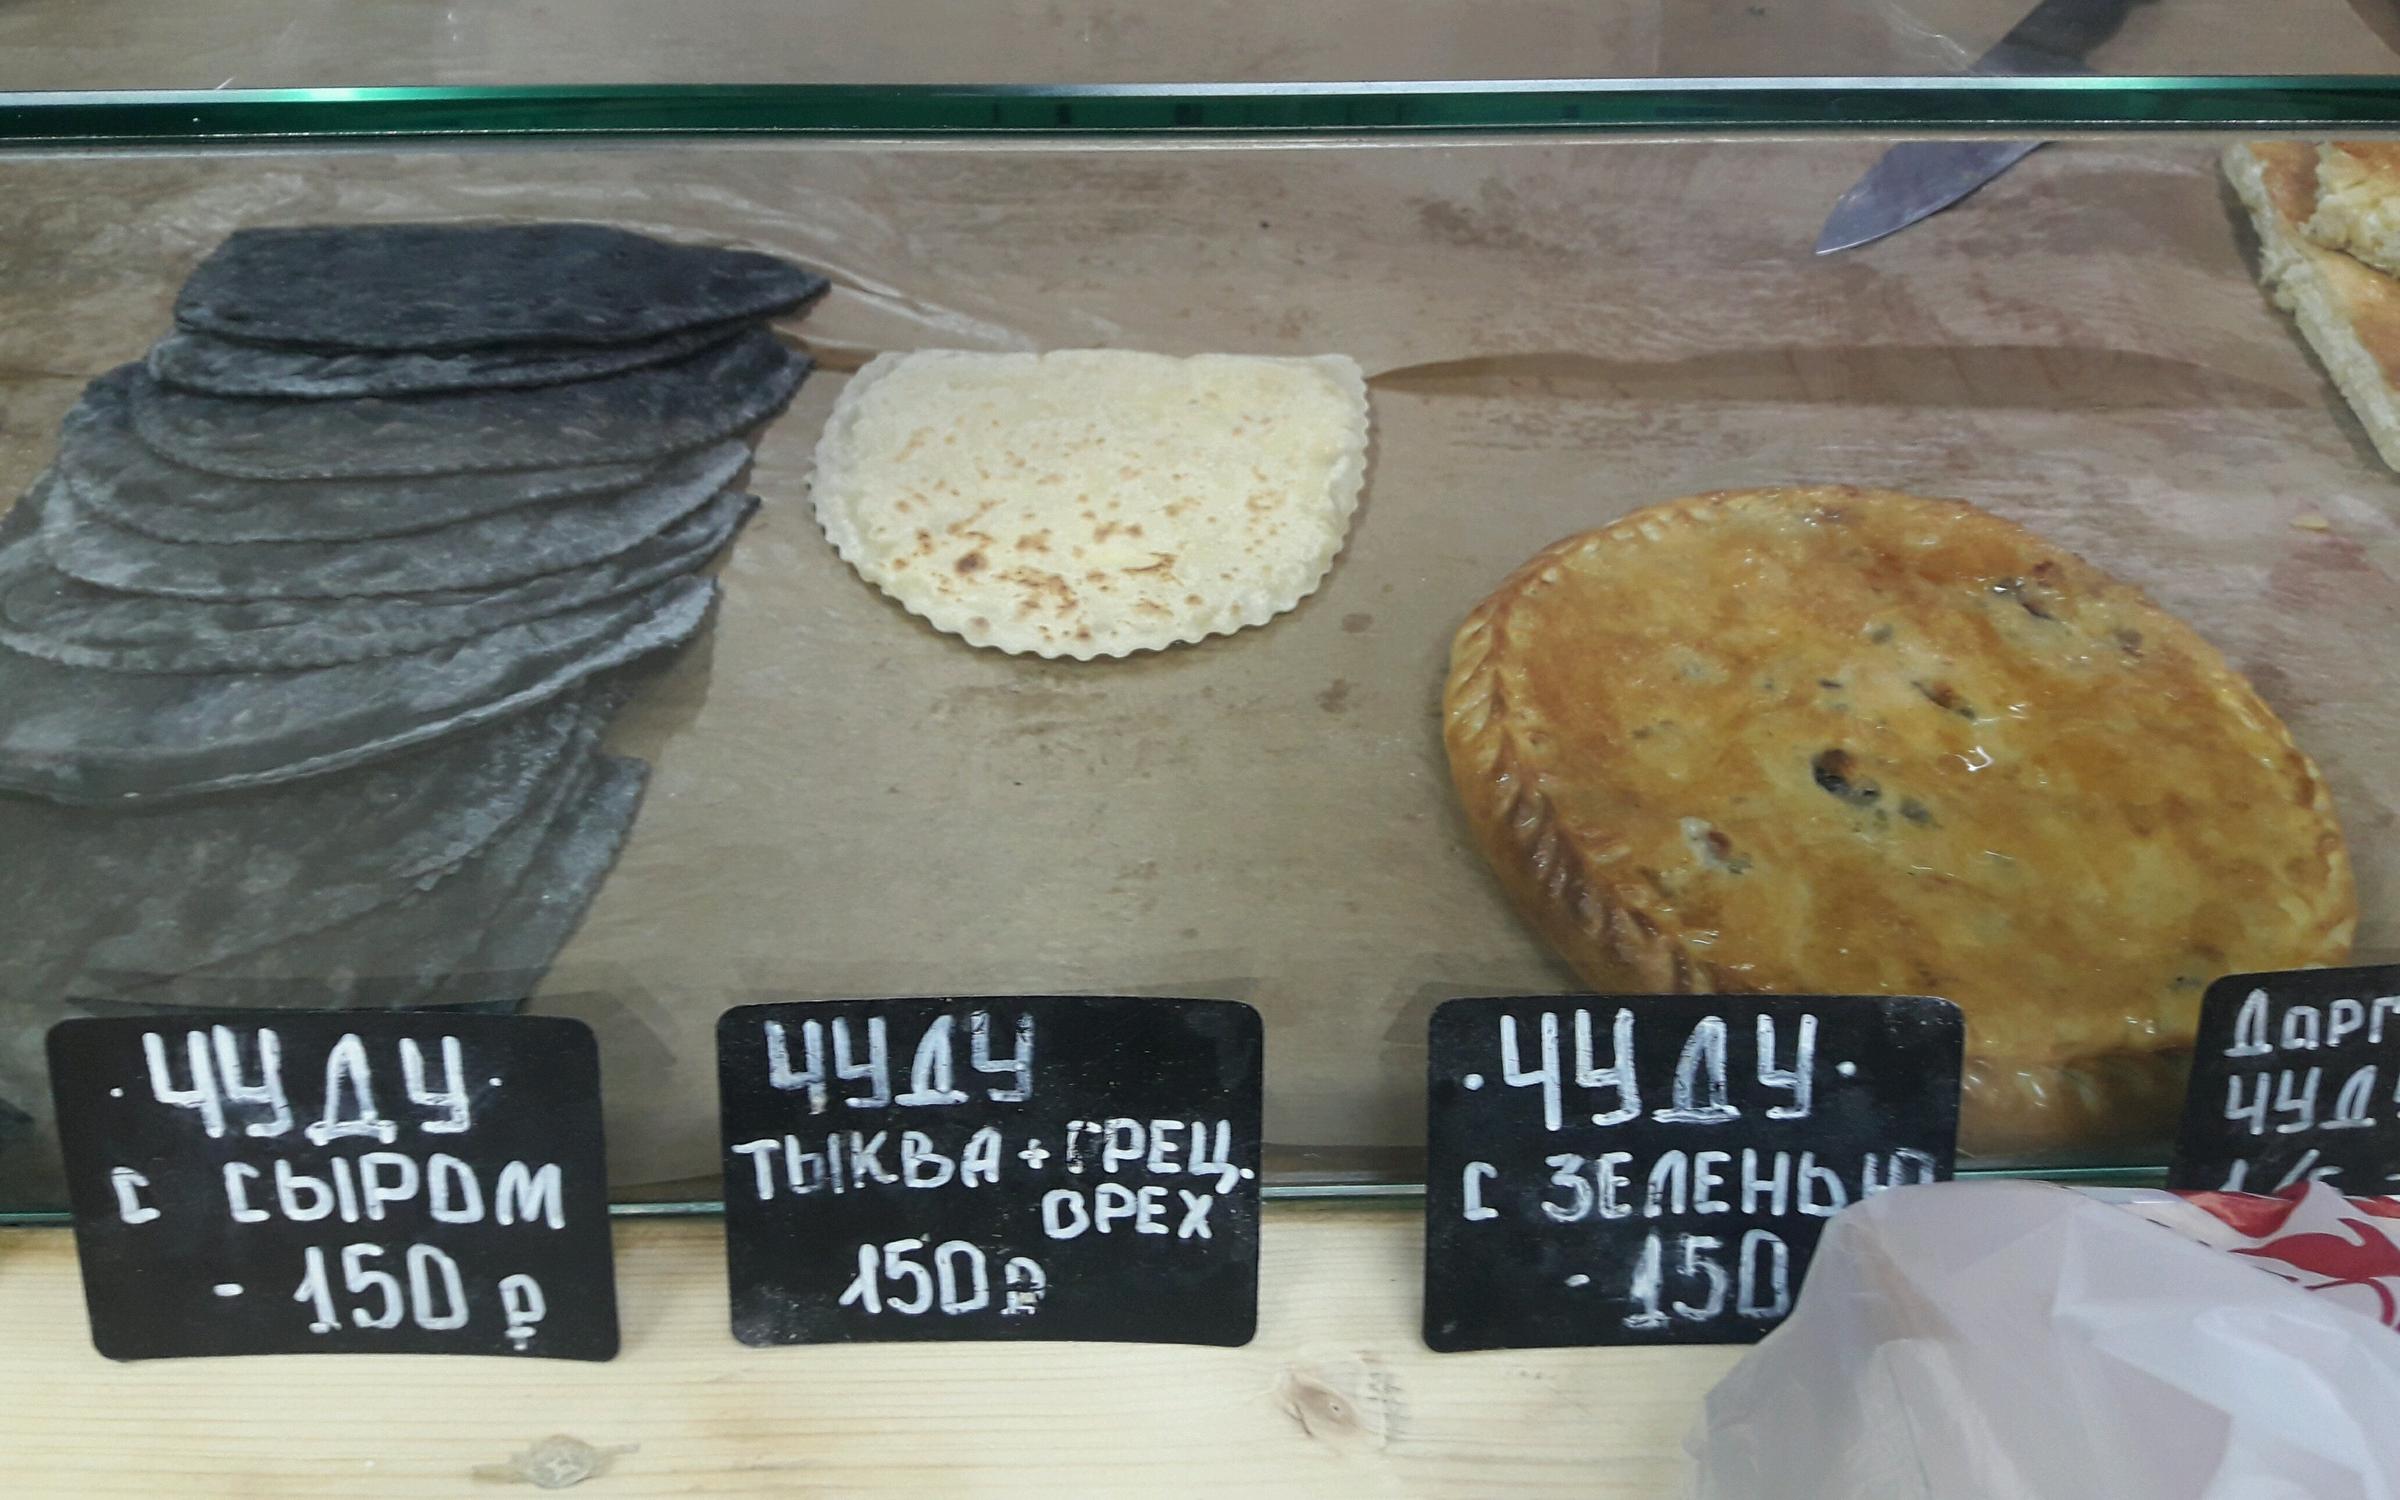 ·ЧУДУ·
С СЫРОМ
- 150 ₽
ЧУДУ
ТЫКВА + ГРЕЦ.
ОРЕХ
150 ₽
·ЧУДУ·
С ЗЕЛЕНЬЮ
- 150
ДАРГ
ЧУДУ